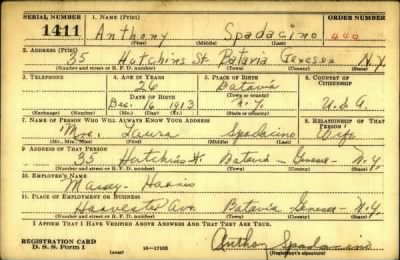 SERIAL NUMBER 1. NAME (Print) ORDER NUMBER
1411 Anthony Spadacino 440
(First) (Middle) (Last)
2. ADDRESS (Print)
35 Hutchins St. Batavia Genesee N.Y.
(Number and street or R. F. D. number) (Town) (County) (State)
3. TELEPHONE 4. AGE IN YEARS 5. PLACE OF BIRTH 6. COUNTRY OF CITIZENSHIP
26 Batavia
DATE OF BIRTH (Town or county)
Dec. 16 1913 N.Y. U.S.A.
(Exchange) (Number) (Mo.) (Day) (Yr.) (State or country)
7. NAME OF PERSON WHO WILL ALWAYS KNOW YOUR ADDRESS 8. RELATIONSHIP OF THAT PERSON
Mrs. Laura Spadacino Wife
(Mr., Mrs., Miss) (First) (Middle) (Last)
9. ADDRESS OF THAT PERSON
35 Hutchins St. Batavia - Genesee - N.Y.
(Number and street or R. F. D. number) (Town) (County) (State)
10. EMPLOYER'S NAME
Massey - Harris
11. PLACE OF EMPLOYMENT OR BUSINESS
Harvester Ave. Batavia Genesee - N.Y.
(Number and street or R. F. D. number) (Town) (County) (State)
I AFFIRM THAT I HAVE VERIFIED ABOVE ANSWERS AND THAT THEY ARE TRUE.
REGISTRATION CARD
D. S. S. Form 1 (over) 16-17105 Anthony Spadacino
(Registrant's signature)